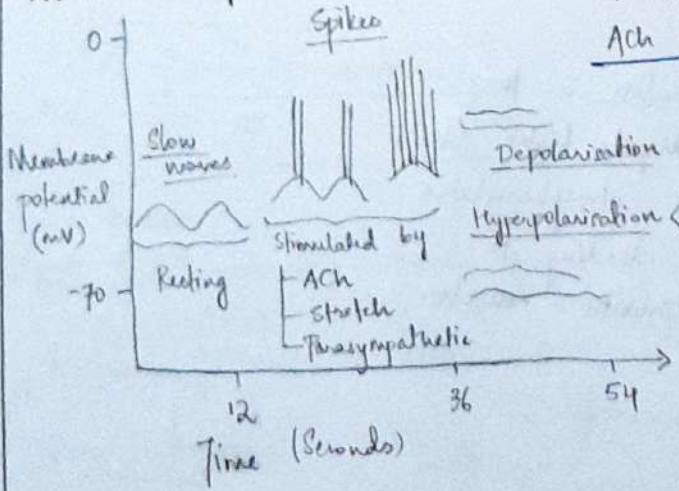 Spikes
0
ACh
Membrane
potential
(mV)
Slow
waves
Depolarisation
Hyperpolarisation <
Resting
Stimulated by
ACh
Stretch
Parasympathetic
-70
12
36
54
Time (Seconds)